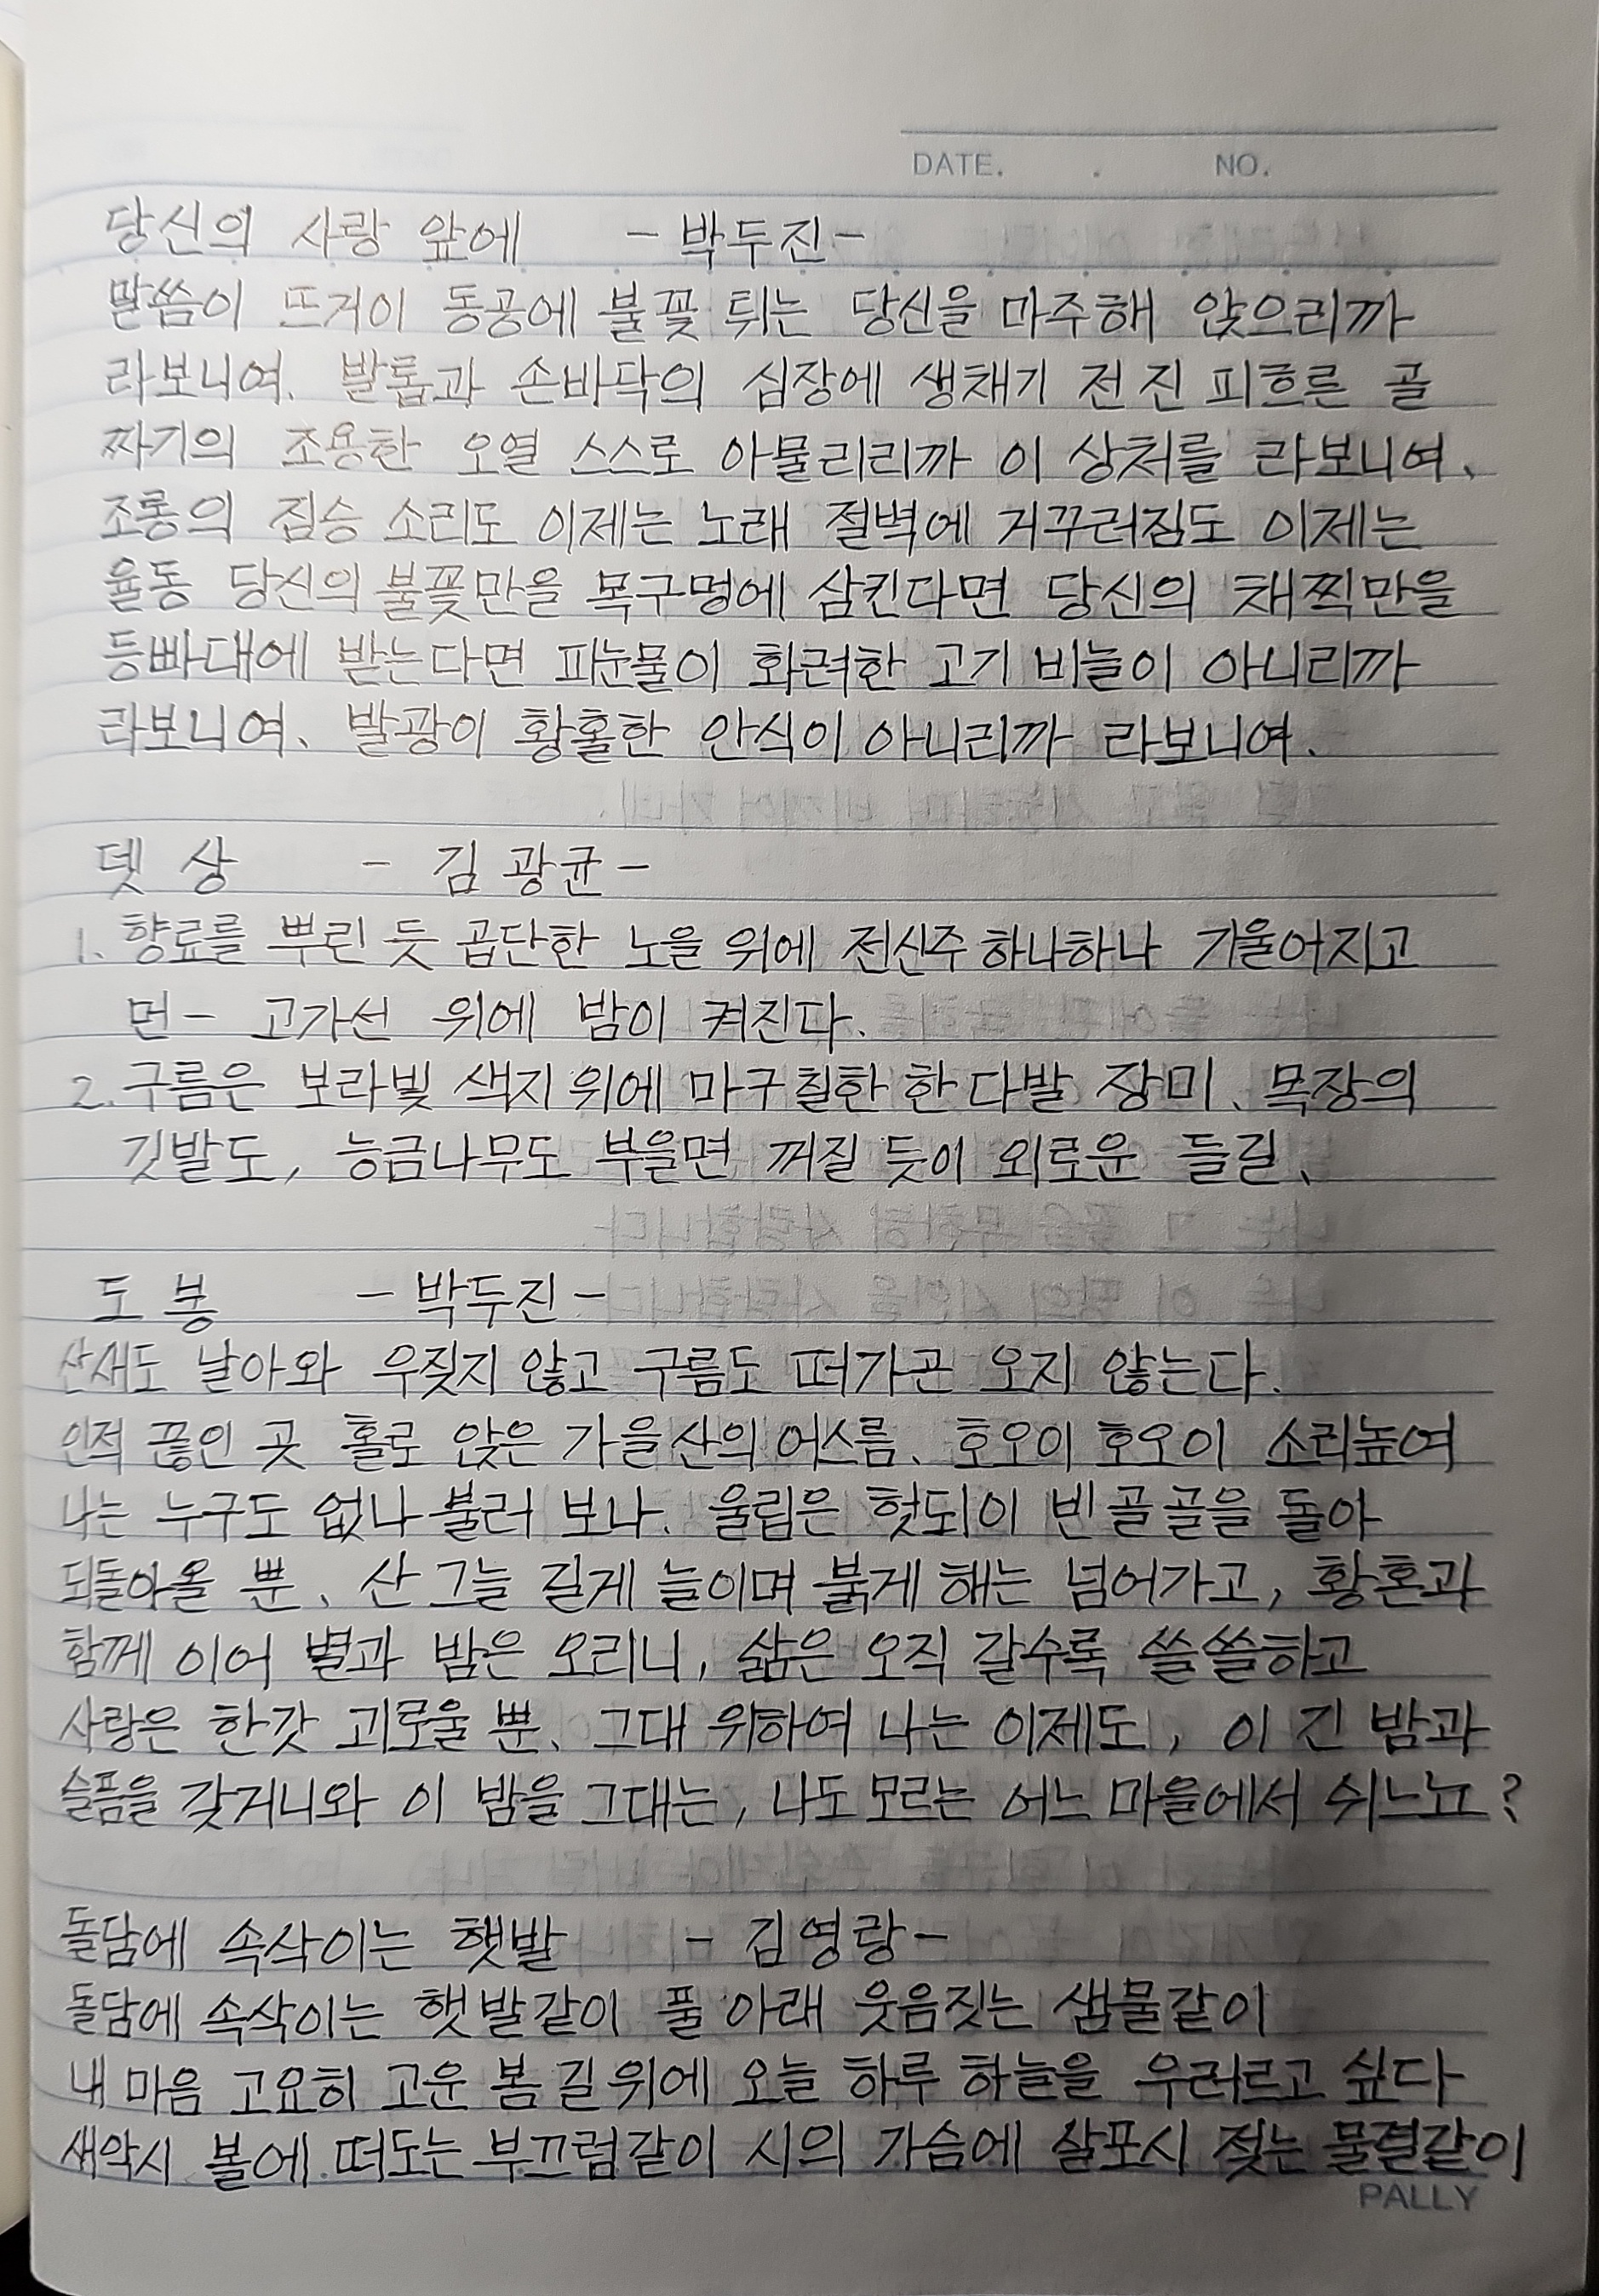 DATE. . NO.
당신의 사랑 앞에 - 박두진 -
말씀이 뜨거이 동공에 불꽃 튀는 당신을 마주해 앉으리까
라보니여. 발톱과 손바닥의 심장에 생채기 전 진 피흐른 골
짜기의 조용한 오열 스스로 아물리리까 이 상처를 라보니여.
조롱의 짐승 소리도 이제는 노래 절벽에 거꾸러짐도 이제는
율동 당신의 불꽃만을 목구멍에 삼킨다면 당신의 채찍만을
등빠대에 받는다면 피눈물이 화려한 고기 비늘이 아니리까
라보니여. 발광이 황홀한 안식이 아니리까 라보니여.
뎃상 - 김광균 -
1. 향료를 뿌린 듯 곱단한 노을 위에 전신주 하나하나 기울어지고
먼- 고가선 위에 밤이 켜진다.
2. 구름은 보라빛 색지 위에 마구 칠한 한 다발 장미. 목장의
깃발도, 능금나무도 부을면 꺼질 듯이 외로운 들길.
도봉 - 박두진 -
산새도 날아와 우짖지 않고 구름도 떠가곤 오지 않는다.
인적 끊인 곳 홀로 앉은 가을산의 어스름. 호오이 호오이 소리높여
나는 누구도 없나 불러 보나. 울림은 헛되이 빈 골골을 돌아
되돌아올 뿐. 산 그늘 길게 늘이며 붉게 해는 넘어가고, 황혼과
함께 이어 별과 밤은 오리니, 삶은 오직 갈수록 쓸쓸하고
사랑은 한갓 괴로울 뿐. 그대 위하여 나는 이제도, 이 긴 밤과
슬픔을 갖거니와 이 밤을 그대는, 나도 모르는 어느 마을에서 쉬느뇨?
돌담에 속삭이는 햇발 - 김영랑 -
돌담에 속삭이는 햇발같이 풀 아래 웃음짓는 샘물같이
내 마음 고요히 고운 봄 길 위에 오늘 하루 하늘을 우러르고 싶다
새악시 볼에 떠도는 부끄럼같이 시의 가슴에 살포시 젖는 물결같이
PALLY